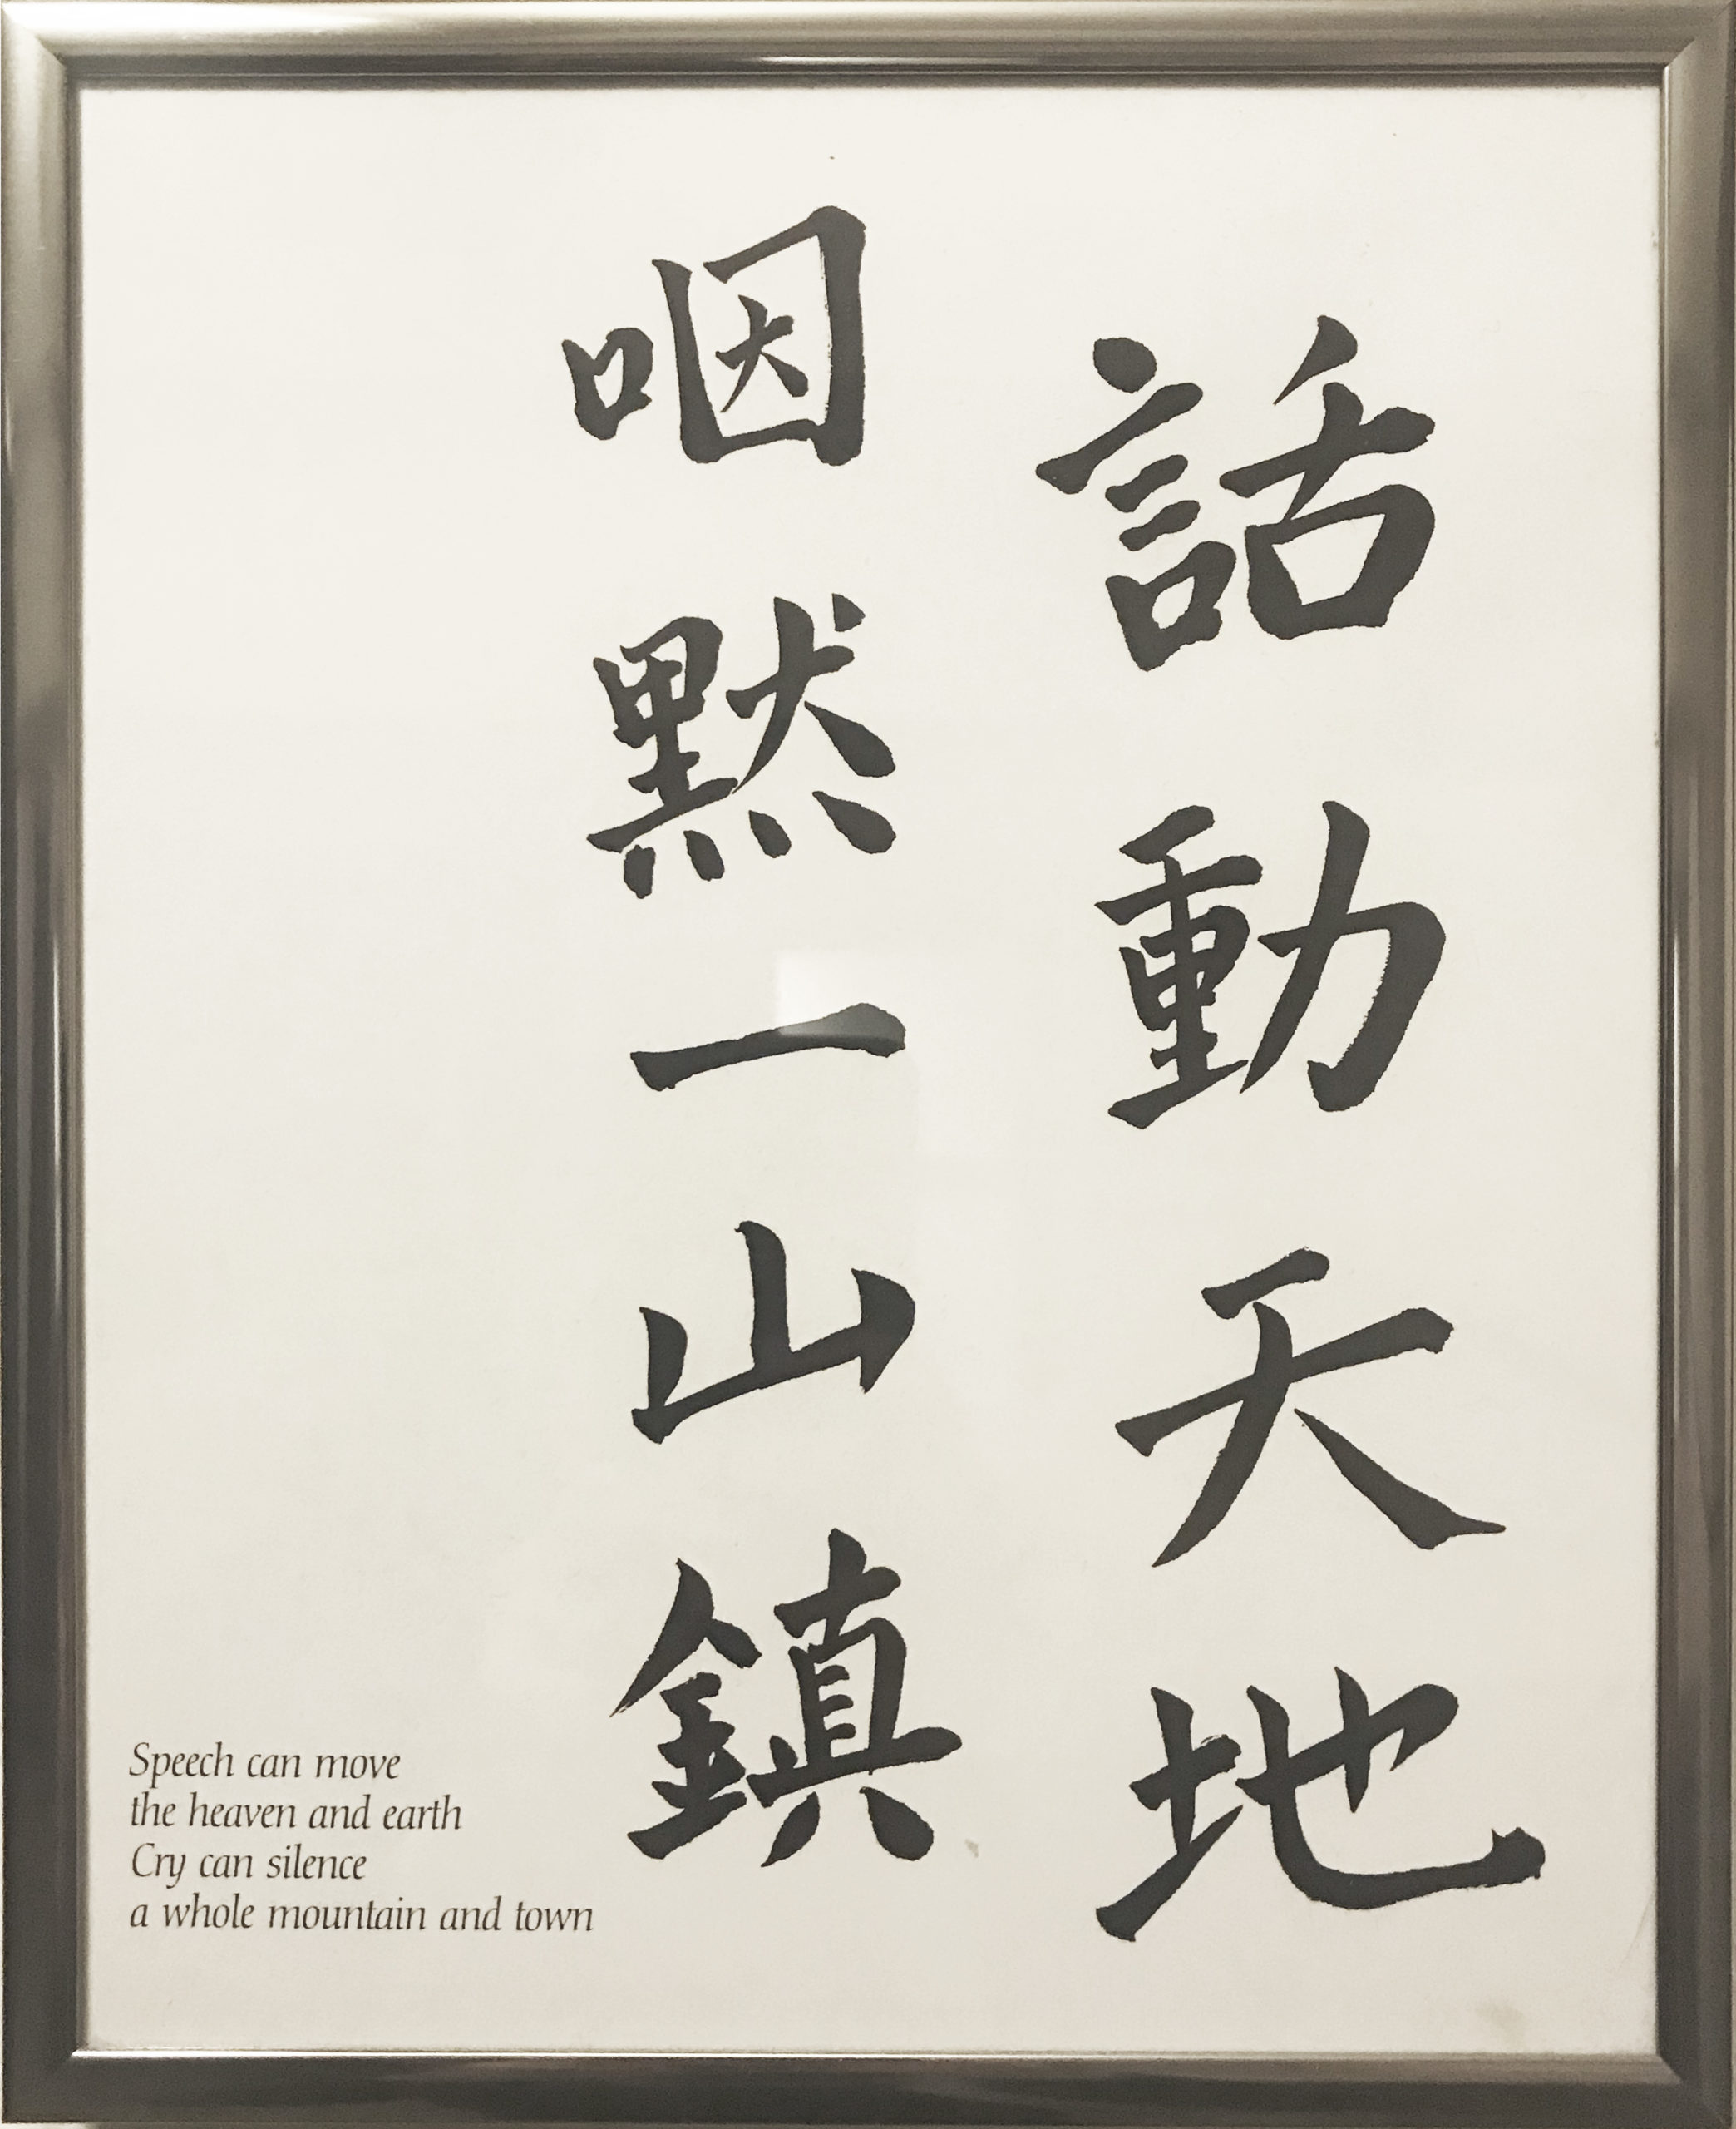 話動天地
咽黙一山鎮
Speech can move
the heaven and earth
Cry can silence
a whole mountain and town